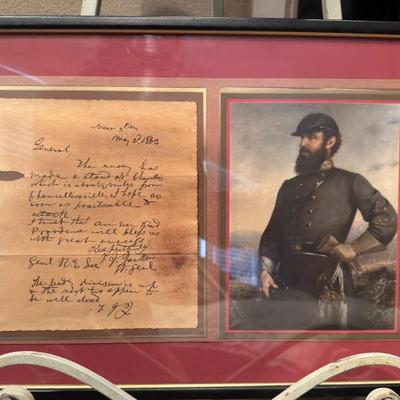 Near 3 P.m
May 2d 1863
General,
The enemy has
made a stand at Chancellor's
which is about 2 miles from
Chancellorsville. I hope as
soon as practicable to
attack
I trust that an ever kind
Providence will bless us
with great success.
Respectfully
T. J. Jackson
Genl R. E. Lee Lt. Genl.
The leading division is up
& the next two appear to
be well closed
T. J. J.